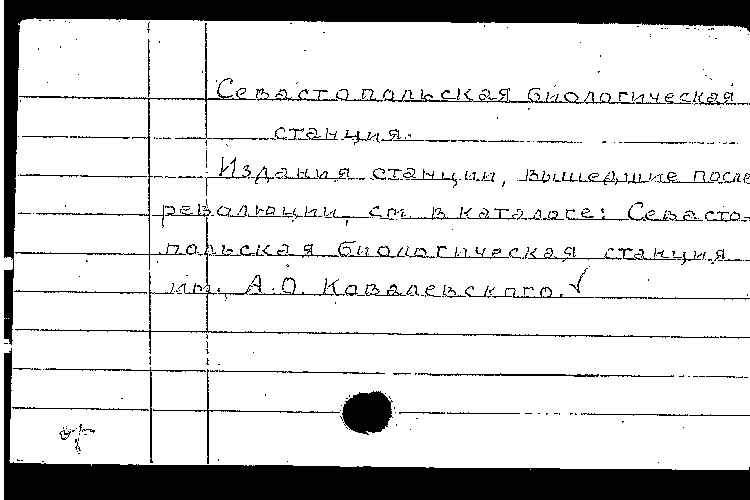 Севастопольская биологическая
станция.
Издания станции, вышедшие после
революции, см. в каталоге: Севасто-
польская биологическая станция
им. А.О. Ковалевского. ✓